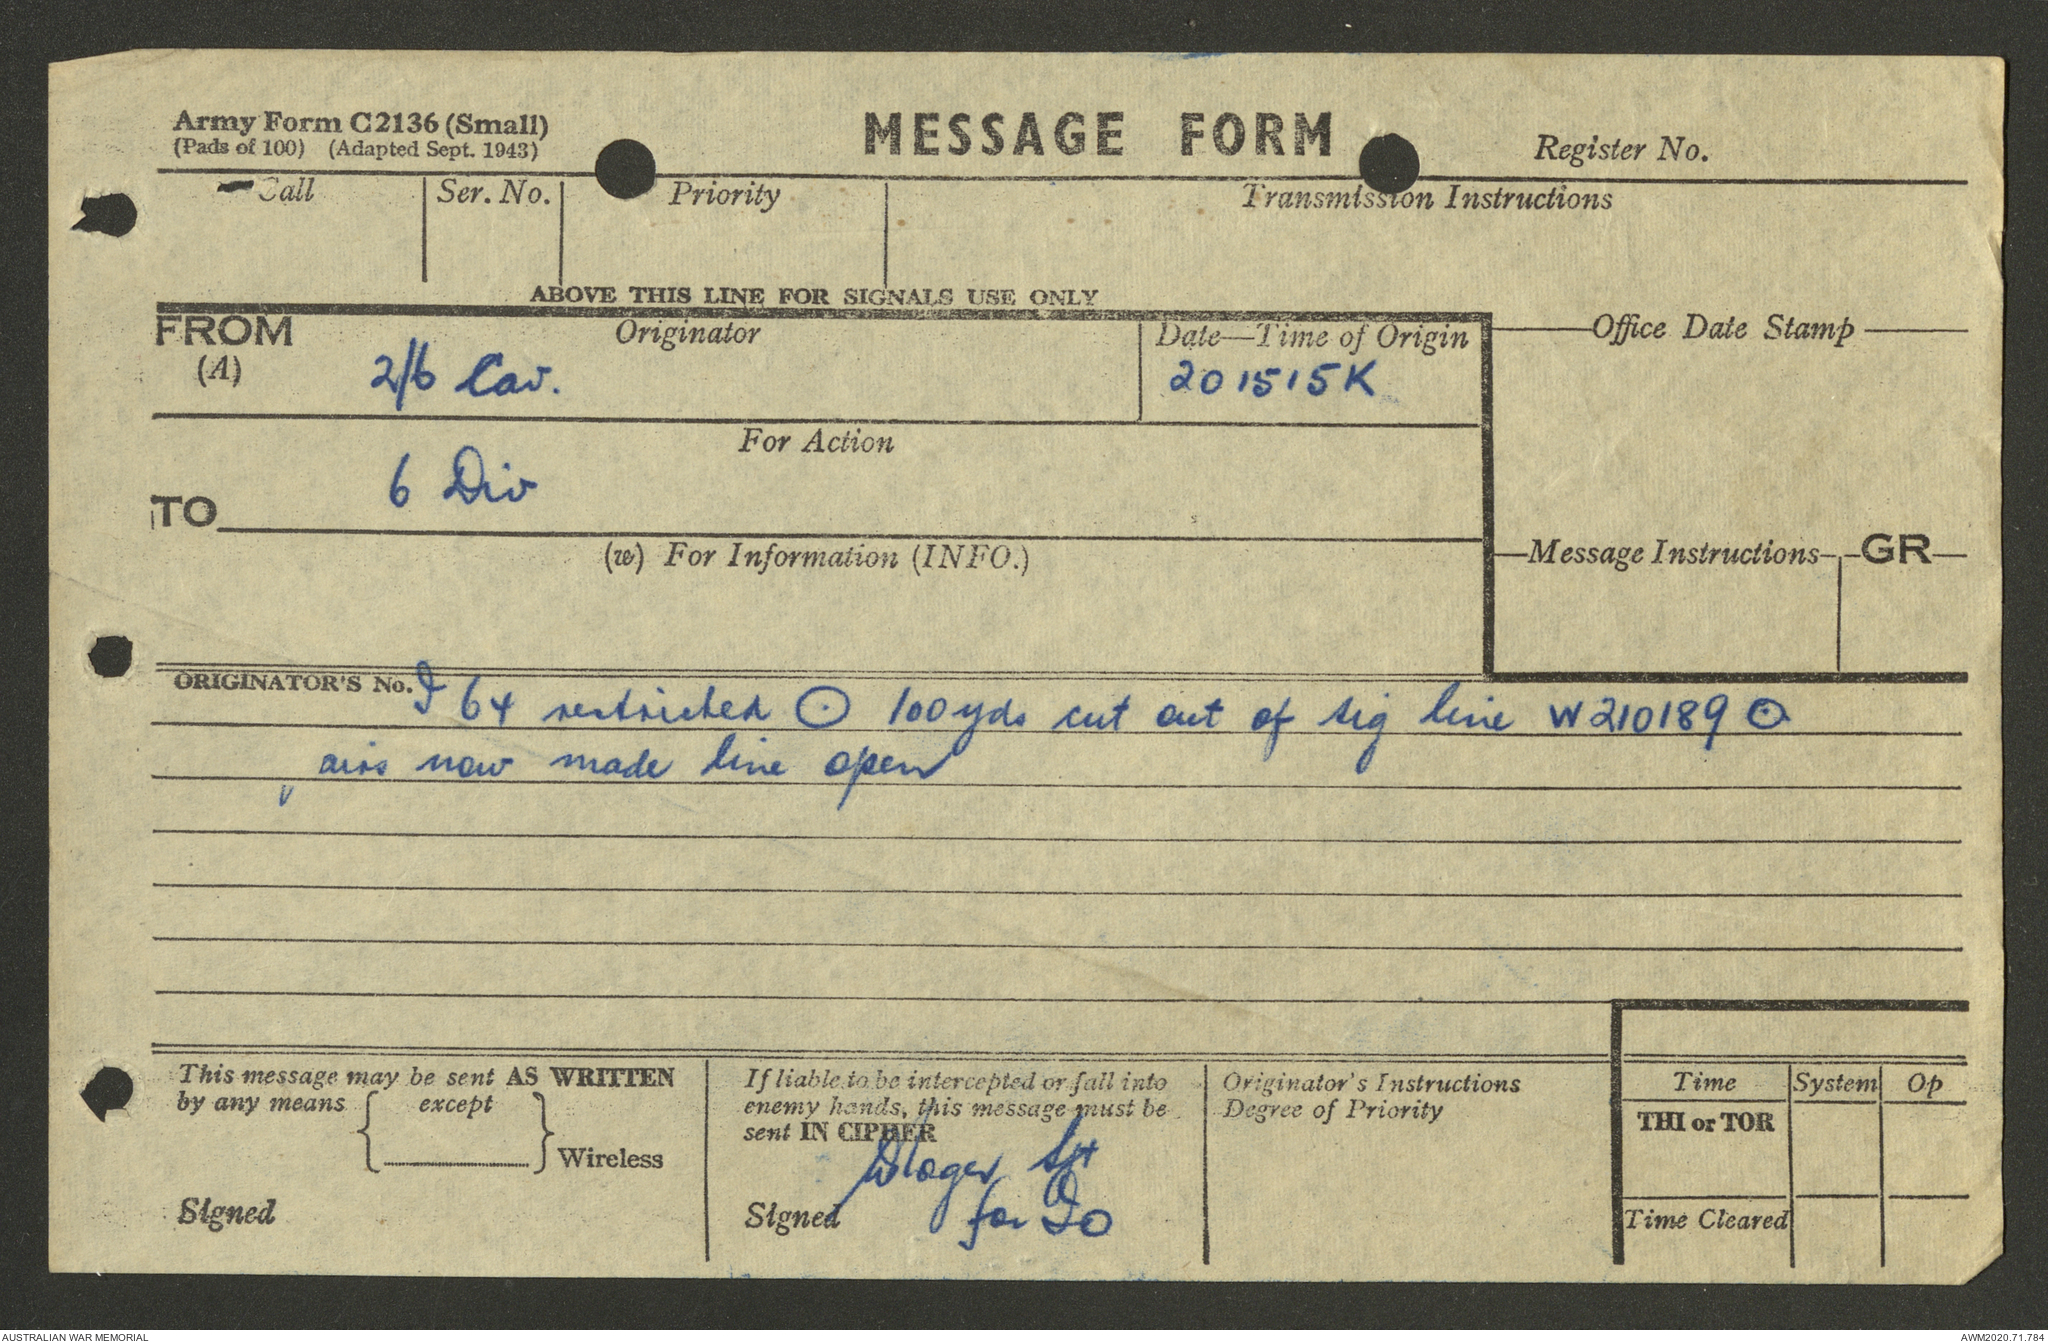 Army Form C2136 (Small)
(Pads of 100) (Adapted Sept. 1943)
MESSAGE FORM
Register No.
Call
Ser. No.
Priority
Transmission Instructions
ABOVE THIS LINE FOR SIGNALS USE ONLY
FROM
(A)
Originator
2/6 Cav.
Date—Time of Origin
201515K
Office Date Stamp
For Action
TO
6 Div
(w) For Information (INFO.)
Message Instructions
GR
ORIGINATOR'S No.
I 64 restricted ⊙ 100 yds cut out of sig line W210189 ⊙
now made line open
This message may be sent AS WRITTEN
by any means { except } Wireless
Signed
If liable to be intercepted or fall into
enemy hands, this message must be
sent IN CIPHER
Signed
for IO
Originator's Instructions
Degree of Priority
Time
System
Op
THI or TOR
Time Cleared
AUSTRALIAN WAR MEMORIAL
AWM2020.71.784